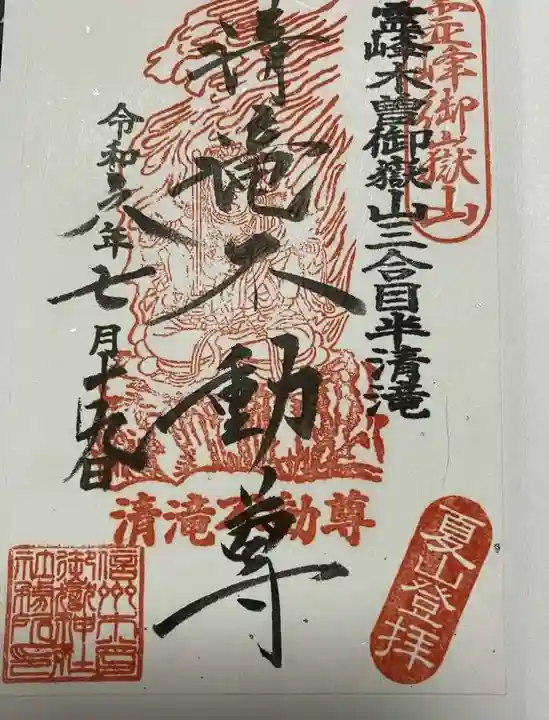 霊峰御嶽山
霊峰木曽御嶽山三合目半清滝
清滝不動尊
令和八年七月十九日
清滝不動尊
夏山登拝
信州木曽
御嶽神社
社務所印